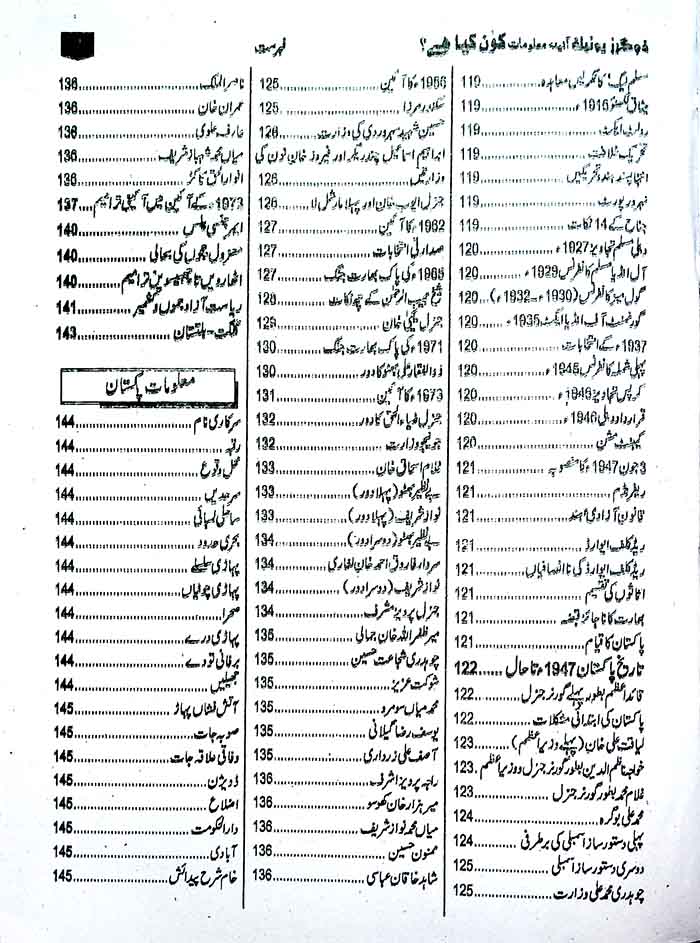 ڈوگرز یونیک اَپ ٹو ڈیٹ معلومات کون کیا ہے؟
فہرست
مسلم لیگ، کانگریس معاہدہ 119
میثاق لکھنؤ 1916ء 119
رولٹ ایکٹ 119
تحریک خلافت 119
انتہا پسند ہندو تحریکیں 119
نہرو رپورٹ 119
جناح کے 14 نکات 119
دہلی مسلم تجاویز 1927ء 120
آل انڈیا مسلم کانفرنس 1929ء 120
گول میز کانفرنس (1930ء-1932ء) 120
گورنمنٹ آف انڈیا ایکٹ 1935ء 120
1937ء کے انتخابات 120
پہلی شملہ کانفرنس 1945ء 120
کرپس تجاویز 120
قرارداد دہلی 1946ء 120
کیبنٹ مشن 120
3 جون 1947ء کا منصوبہ 121
ریفرنڈم 121
قانون آزادی ہند 121
ریڈ کلف ایوارڈ 121
ریڈ کلف ایوارڈ کی ناانصافیاں 121
اثاثوں کی تقسیم 121
بھارت کا ناجائز قبضہ 121
پاکستان کا قیام 121
تاریخ پاکستان 1947ء تا حال 122
قائداعظم بطور پہلے گورنر جنرل 122
پاکستان کی ابتدائی مشکلات 122
لیاقت علی خان (پہلے وزیراعظم) 123
خواجہ ناظم الدین بطور گورنر جنرل و وزیراعظم 123
غلام محمد بطور گورنر جنرل 123
محمد علی بوگرہ 124
پہلی دستور ساز اسمبلی کی برطرفی 124
دوسری دستور ساز اسمبلی 125
چوہدری محمد علی وزارت 125
1956ء کا آئین 125
سکندر مرزا 125
حسین شہید سہروردی کی وزارت 126
ابراہیم اسماعیل چندریگر اور فیروز خان نون کی
وزارتیں 126
جنرل ایوب خان اور پہلا مارشل لا 126
1962ء کا آئین 127
صدارتی انتخابات 127
1965ء کی پاک بھارت جنگ 127
شیخ مجیب الرحمٰن کے چھ نکات 128
جنرل یحییٰ خان 129
1971ء کی پاک بھارت جنگ 130
ذوالفقار علی بھٹو کا دور 130
1973ء کا آئین 131
جنرل ضیاء الحق کا دور 132
جونیجو وزارت 132
غلام اسحاق خان 133
بے نظیر بھٹو (پہلا دور) 133
نواز شریف (پہلا دور) 133
بے نظیر بھٹو (دوسرا دور) 134
سردار فاروق احمد خان لغاری 134
نواز شریف (دوسرا دور) 134
جنرل پرویز مشرف 134
میر ظفر اللہ خان جمالی 135
چوہدری شجاعت حسین 135
شوکت عزیز 135
محمد میاں سومرو 135
یوسف رضا گیلانی 135
آصف علی زرداری 135
راجہ پرویز اشرف 136
میر ہزار خان کھوسو 136
میاں محمد نواز شریف 136
ممنون حسین 136
شاہد خاقان عباسی 136
ناصر الملک 136
عمران خان 136
عارف علوی 136
میاں محمد شہباز شریف 136
انوار الحق کاکڑ 136
1973ء کے آئین میں آئینی ترامیم 137
ایمرجنسی پلس 140
معزول ججوں کی بحالی 140
اٹھارویں تا چھبیسویں ترامیم 140
ریاست آزاد جموں و کشمیر 141
گلگت - بلتستان 143
معلومات پاکستان
سرکاری نام 144
رقبہ 144
محل وقوع 144
سرحدیں 144
ساحلی لمبائی 144
بحری حدود 144
پہاڑی سلسلے 144
پہاڑی چوٹیاں 144
صحرا 144
پہاڑی درے 144
برفانی تودے 144
جھیلیں 144
آتش فشاں پہاڑ 145
صوبہ جات 145
وفاقی علاقہ جات 145
ڈویژن 145
اضلاع 145
دارالحکومت 145
آبادی 145
خام شرح پیدائش 145